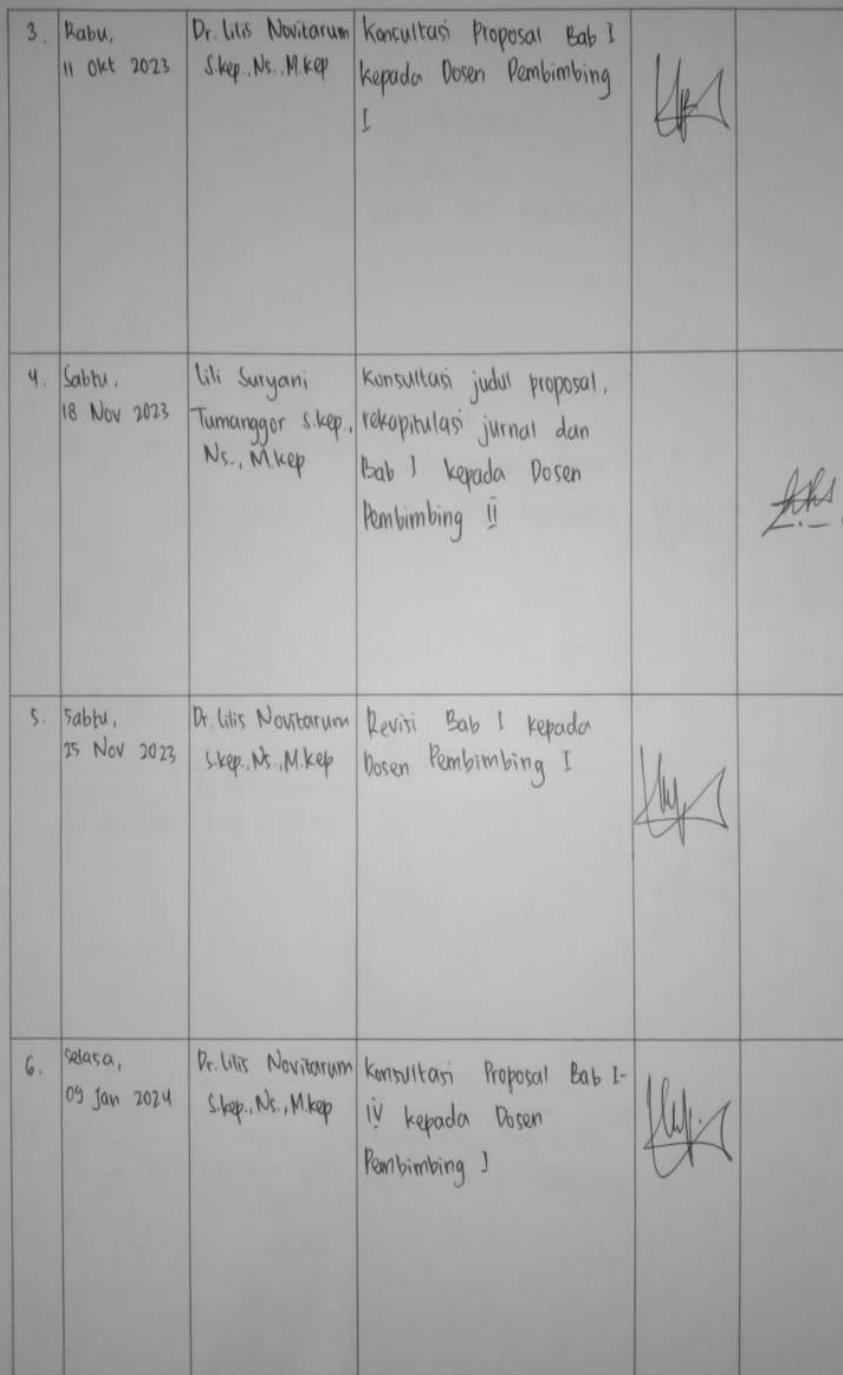 3. Rabu,
11 Okt 2023
Dr. Lilis Novitarum
S.kep., Ns., M.kep
Konsultasi Proposal Bab I
kepada Dosen Pembimbing
I
4. Sabtu,
18 Nov 2023
Lili Suryani
Tumanggor S.kep.,
Ns., M.kep
Konsultasi judul proposal,
rekapitulasi jurnal dan
Bab I kepada Dosen
Pembimbing II
5. Sabtu,
25 Nov 2023
Dr. Lilis Novitarum
S.kep., Ns., M.kep
Revisi Bab I kepada
Dosen Pembimbing I
6. Selasa,
09 Jan 2024
Dr. Lilis Novitarum
S.kep., Ns., M.kep
Konsultasi Proposal Bab I-
IV kepada Dosen
Pembimbing I